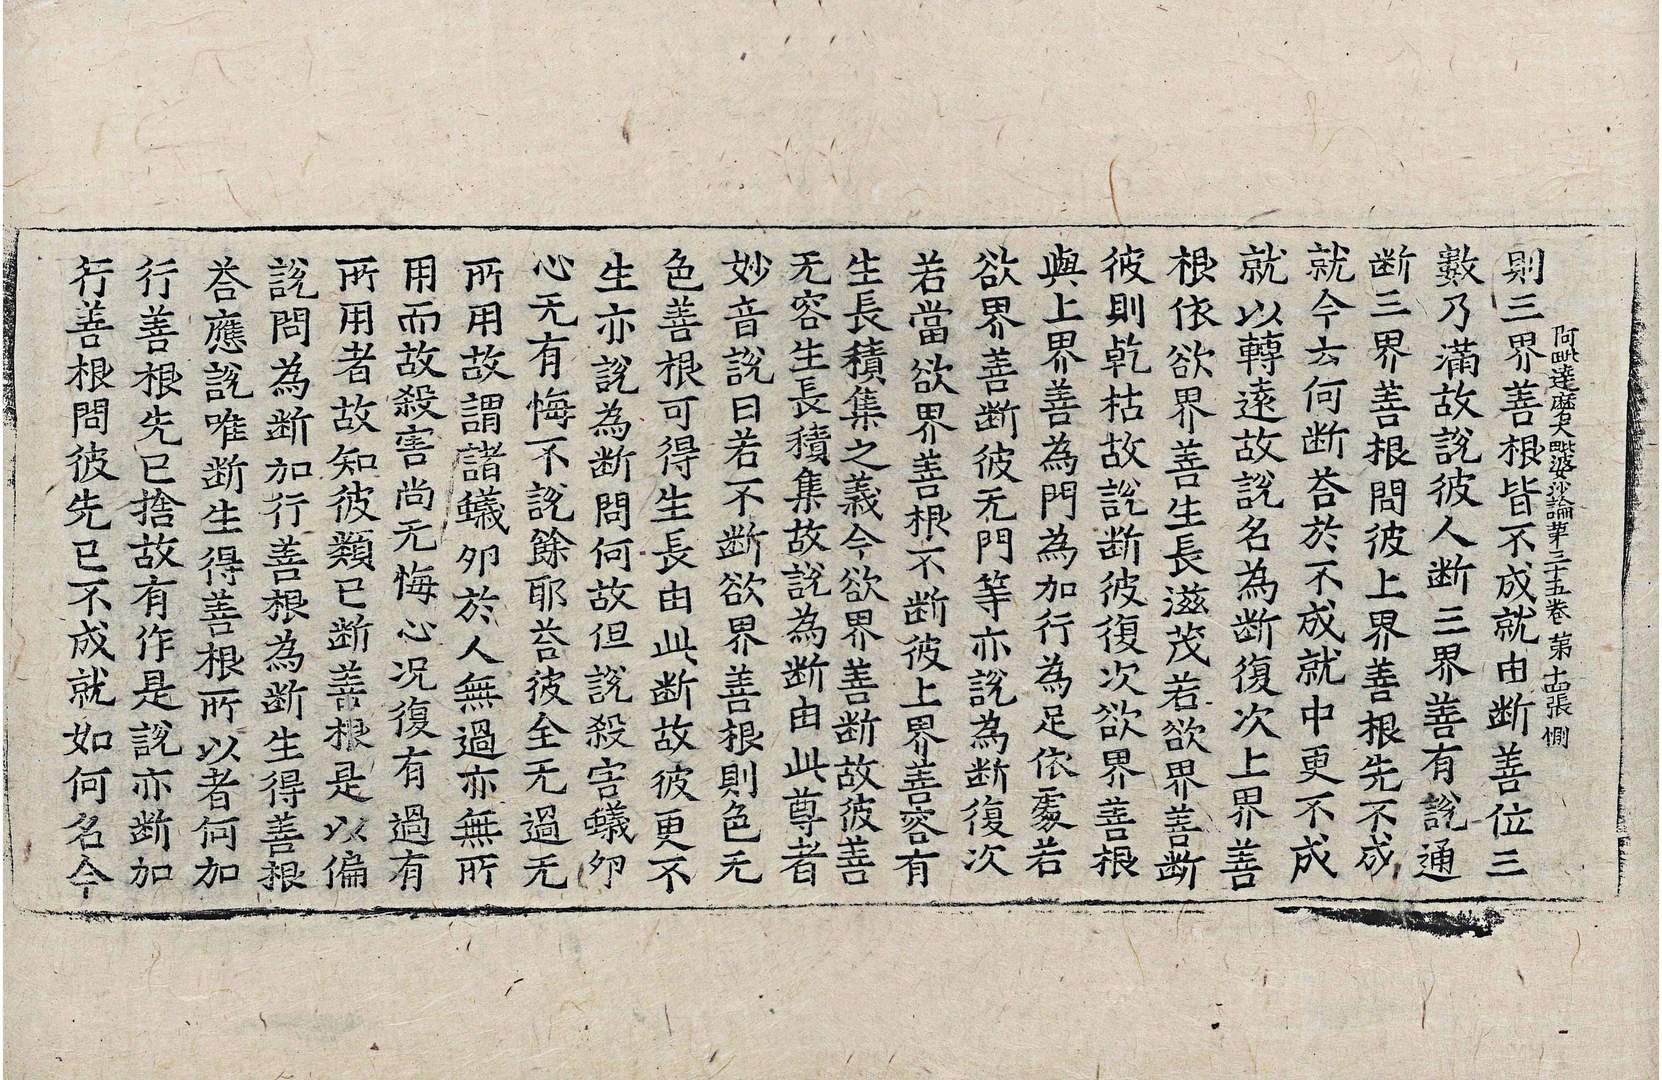 阿毗達磨大毗婆沙論第三十五卷 第十四張 惻
則三界善根皆不成就由断善位三
數乃滿故說彼人断三界善有說通
断三界善根問彼上界善根先不成
就今云何断荅於不成就中更不成
就以轉遠故說名為断復次上界善
根依欲界善生長滋茂若欲界善断
彼則乹枯故說断彼復次欲界善根
與上界善為門為加行為足依處若
欲界善断彼无門等亦說為断復次
若當欲界善根不断彼上界善容有
生長積集之義今欲界善断故彼善
无容生長積集故說為断由此尊者
妙音說曰若不断欲界善根則色无
色善根可得生長由此断故彼更不
生亦說為断問何故但說殺害蟻夘
心无有悔不說餘耶荅彼全无過无
所用故謂諸蟻夘於人無過亦無所
用而故殺害尚无悔心况復有過有
所用者故知彼類已断善根是以偏
說問為断加行善根為断生得善根
荅應說唯断生得善根所以者何加
行善根先已捨故有作是說亦断加
行善根問彼先已不成就如何名今